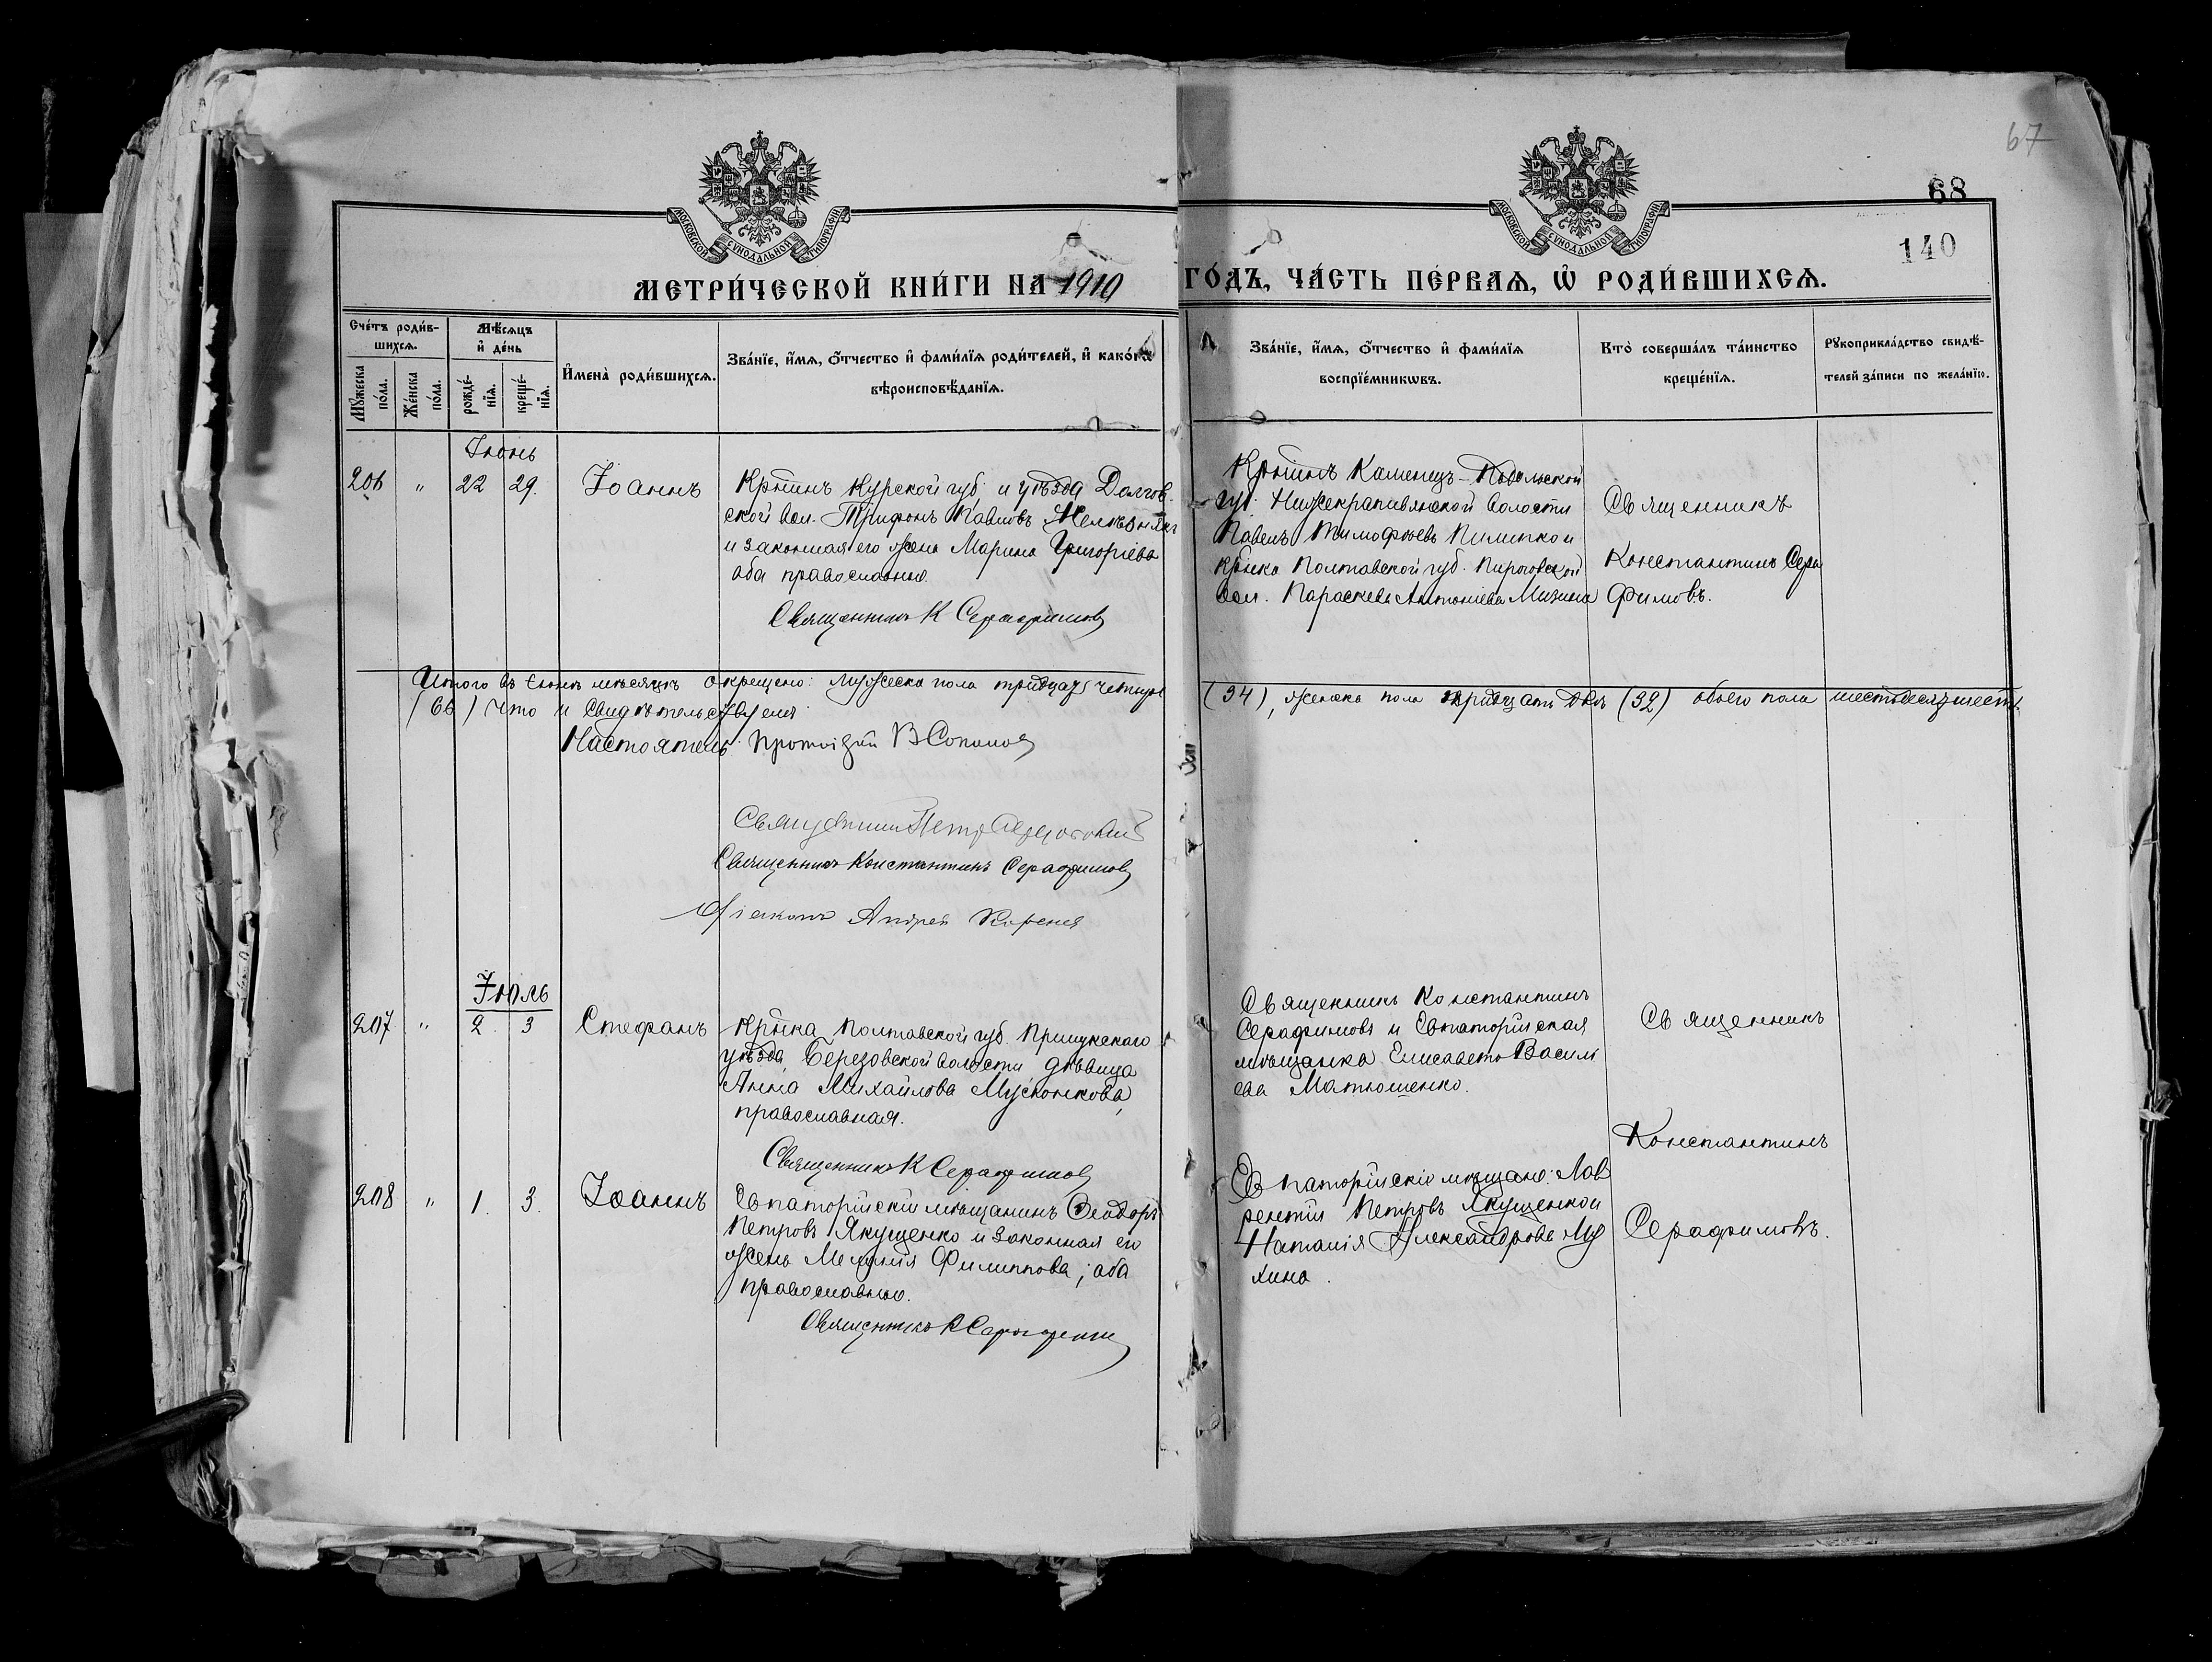 67
68
140
МОСКОВСКОЙ СѴНОДАЛЬНОЙ ТИПОГРАФІИ
МОСКОВСКОЙ СѴНОДАЛЬНОЙ ТИПОГРАФІИ
МЕТРИ́ЧЕСКОЙ КНИ́ГИ НА 1910 ГО́ДЪ, ЧА́СТЬ ПЕ́РВАѦ, Ѡ҆ РОДИ́ВШИХСѦ.
Сче́тъ роди́вшихсѧ.
Мꙋжеска по́ла.
Же́нска по́ла.
Мѣ́сѧцъ и҆ де́нь
рожде́нїѧ.
креще́нїѧ.
И҆мена̀ роди́вшихсѧ.
Зва́нїе, и҆́мѧ, ѻ҆́тчество и҆ фами́лїѧ роди́телей, и҆ како́гѡ
вѣроисповѣ́данїѧ.
Зва́нїе, и҆́мѧ, ѻ҆́тчество и҆ фами́лїѧ
воспрїе́мникѡвъ.
Кто̀ соверша́лъ та́инство
креще́нїѧ.
Рꙋкоприкла́дство свидѣ́-
телей за́писи по жела́нїю.
Іюнь
206 " 22 29. Іоаннъ
Кр̃тинъ Курской губ. и уѣзда Долгов-
ской вол. Трифонъ Павловъ
и законная его жена Марина Григоріева
оба православные.
Священникъ К Серафимовъ
Кр̃тинъ Каменецъ-Подольской
губ. Нижекрапивянской волости
Павелъ Тимофеевъ Пилипко и
кр̃нка Полтавской губ. Пироговской
вол. Параскева Антоніева Мизина
Священникъ
Константинъ Сера
фимовъ.
Итого въ Іюнѣ мѣсяцѣ окрещено: мужеска пола тридцать четыре (34), женска пола тридцать два (32) обоего пола шестьдесятъ шесть
(66) что и свидѣтельствуемъ
Настоятель Протоіерей В Соколовъ
Священникъ Петръ
Священникъ Константинъ Серафимовъ
Діаконъ Андрей
Іюль
207 " 2. 3 Стефанъ
Кр̃нка Полтавской губ. Прилукскаго
уѣзда, Березовской волости дѣвица
Анна Михайлова Мусконкова,
православная.
Священникъ К Серафимовъ
Священникъ Константинъ
Серафимовъ и Евпаторійская
мѣщанка Елисавета Василі
ева Матюшенко.
Священникъ
Константинъ
Серафимовъ.
208 " 1. 3. Іоаннъ
Евпаторійскій мѣщанинъ Ѳеодоръ
Петровъ Якущенко и законная его
жена Меланія Филиппова; оба
православные.
Священникъ К Серафимовъ
Евпаторійскіе мѣщане: Лав
рентій Петровъ Якущенко и
Наталія Александрова Му
хина.